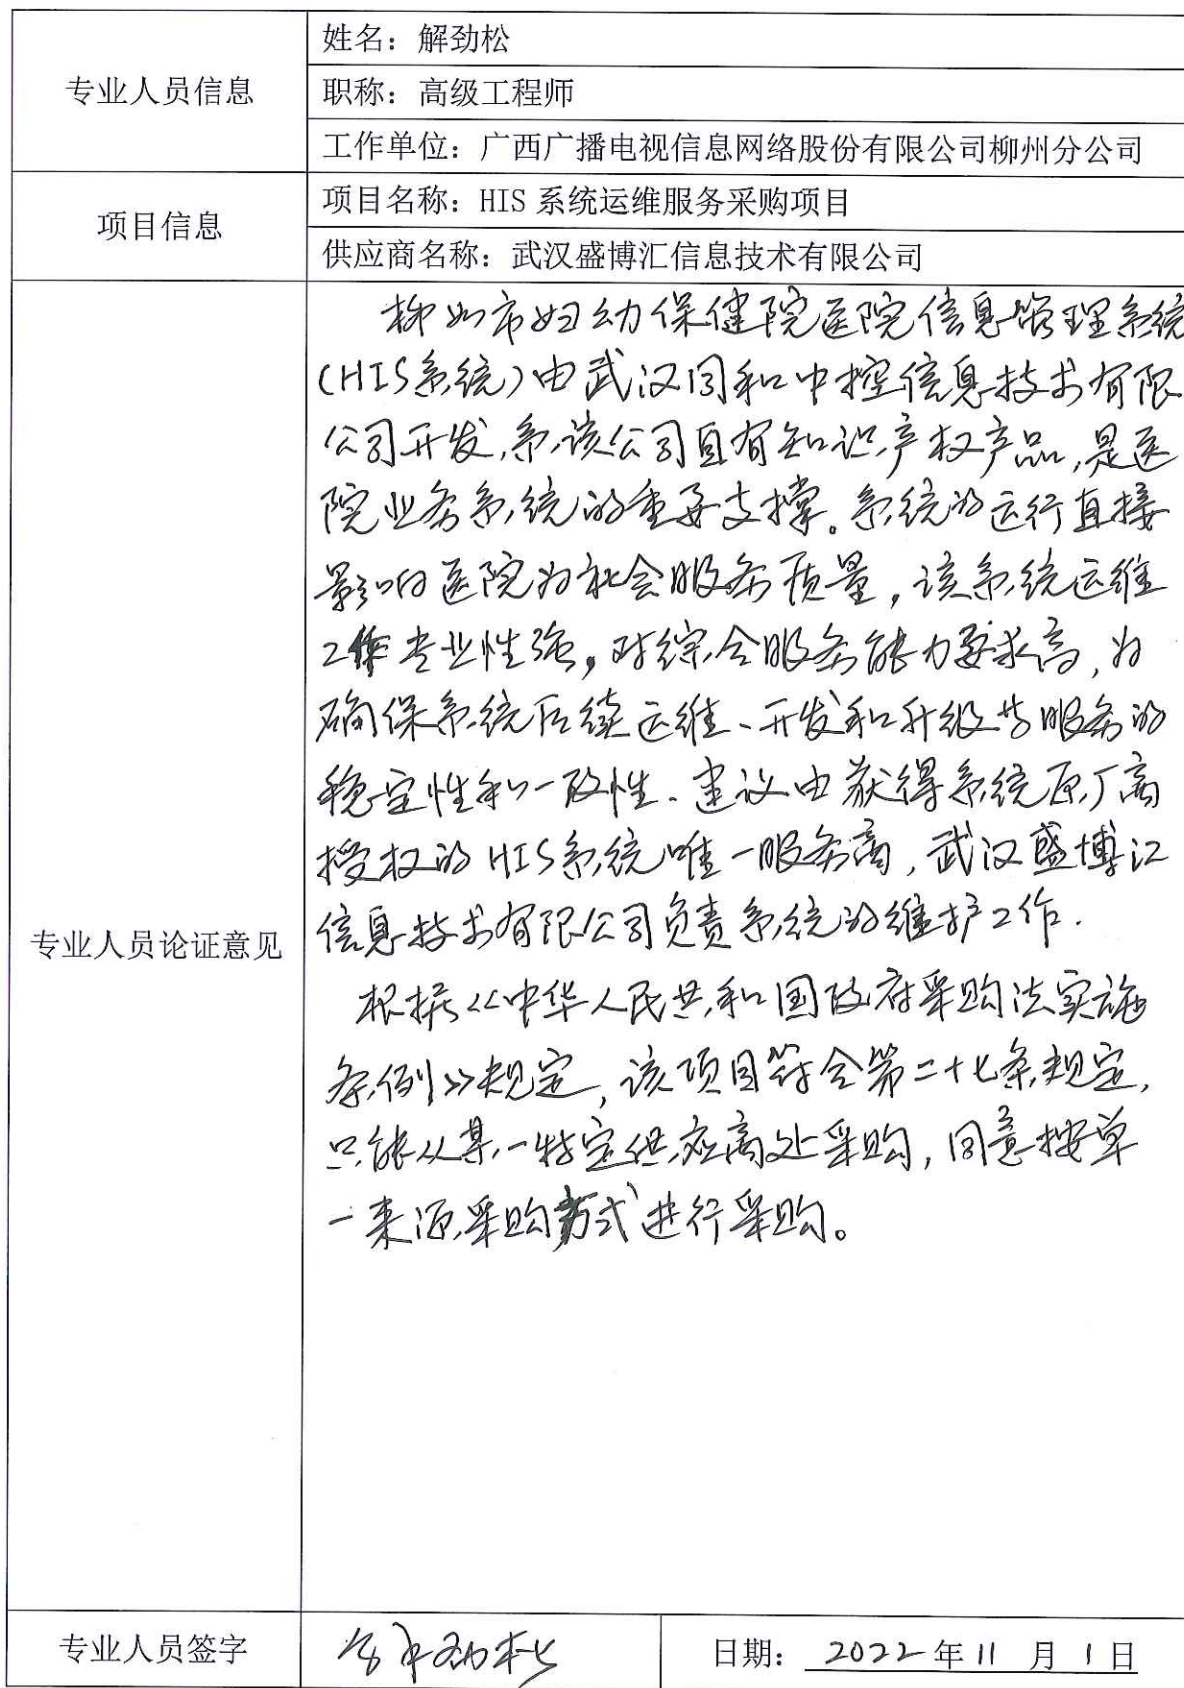 专业人员信息
姓名：解劲松
职称：高级工程师
工作单位：广西广播电视信息网络股份有限公司柳州分公司
项目信息
项目名称：HIS 系统运维服务采购项目
供应商名称：武汉盛博汇信息技术有限公司
专业人员论证意见
柳州市妇幼保健院医院信息管理系统
(HIS系统)由武汉同和中控信息技术有限
公司开发,系该公司自有知识产权产品,是医
院业务系统的重要支撑。系统的运行直接
影响医院的社会服务质量,该系统运维
工作专业性强,对综合服务能力要求高,为
确保系统后续运维、开发和升级与服务的
稳定性和一致性、建议由获得系统原厂商
授权的HIS系统唯一服务商,武汉盛博汇
信息技术有限公司负责系统的维护工作.
根据《中华人民共和国政府采购法实施
条例》规定,该项目符合第二十七条规定,
只能从某一特定供应商处采购,同意按单
一来源采购方式进行采购。
专业人员签字
解劲松
日期：2022年11月1日